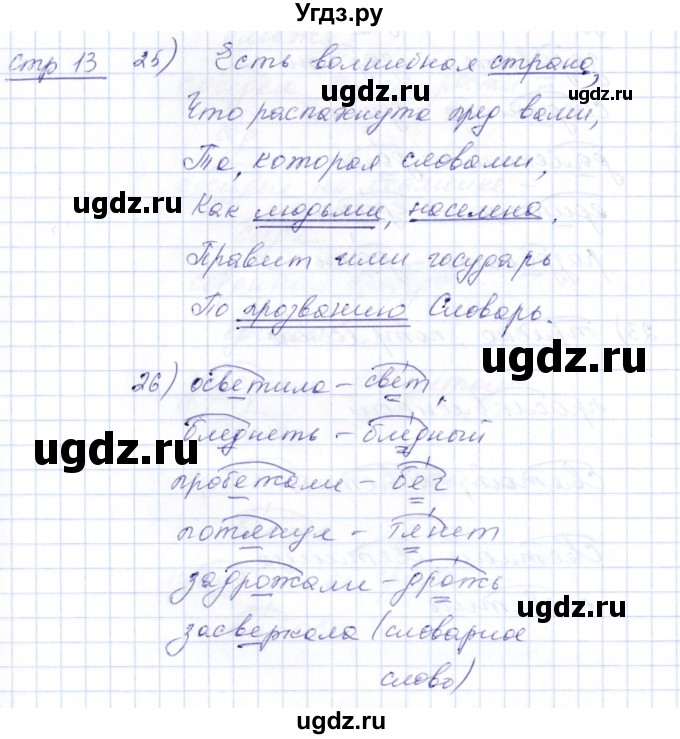 Угдз.ру
стр 13 25) Есть волшебная страна,
ugdz.ru ugdz.ru
Что распахнута пред вами,
Та, которая словами,
ugdz.ru
Как людьми, населена.
Правит ими государь
По прозванию Словарь.
ugdz.ru
26) осветила – свет,
бледнеть – бледный
ugdz.ru
пробежали – бег
потянул – тянет
ugdz.ru ugdz.ru
задрожали – дрожь
засверкала (словарное
слово)
ugdz.ru
ugdz.ru